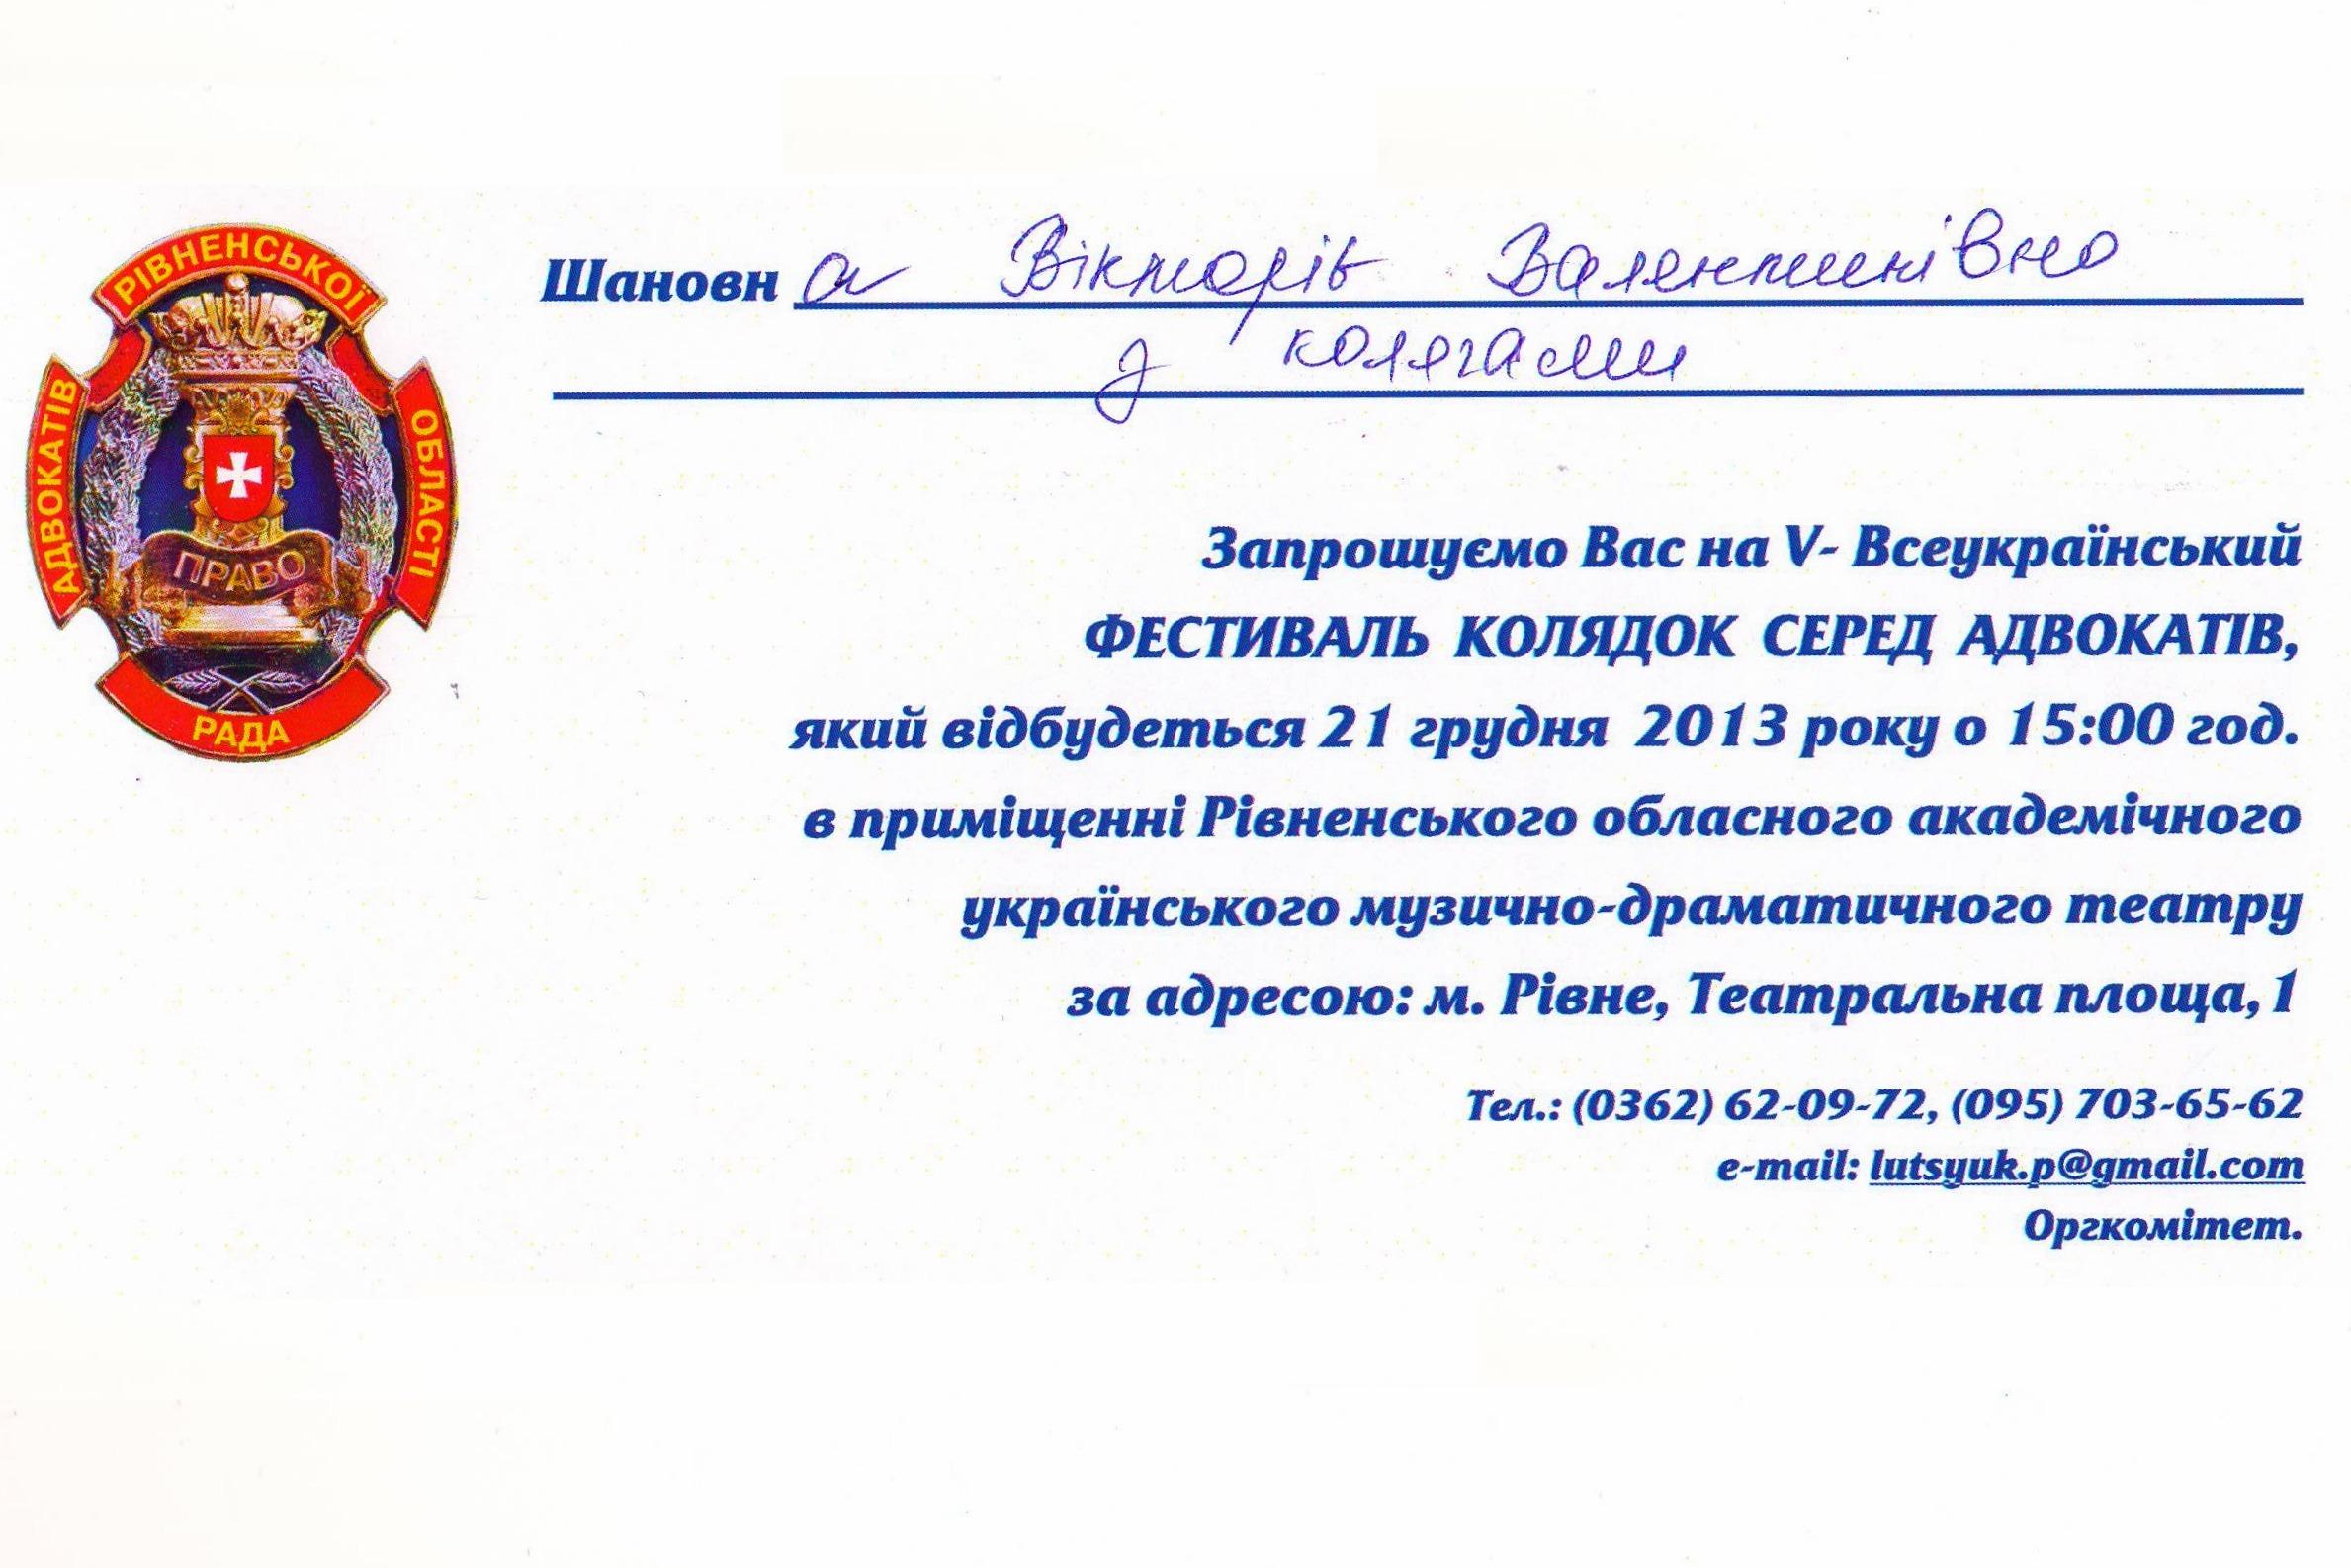 РІВНЕНСЬКОЇ
АДВОКАТІВ
ОБЛАСТІ
ПРАВО
РАДА
Шановна Вікторіє Валентинівно
з колегами
Запрошуємо Вас на V- Всеукраїнський
ФЕСТИВАЛЬ КОЛЯДОК СЕРЕД АДВОКАТІВ,
який відбудеться 21 грудня 2013 року о 15:00 год.
в приміщенні Рівненського обласного академічного
українського музично-драматичного театру
за адресою: м. Рівне, Театральна площа, 1
Тел.: (0362) 62-09-72, (095) 703-65-62
e-mail: lutsyuk.p@gmail.com
Оргкомітет.